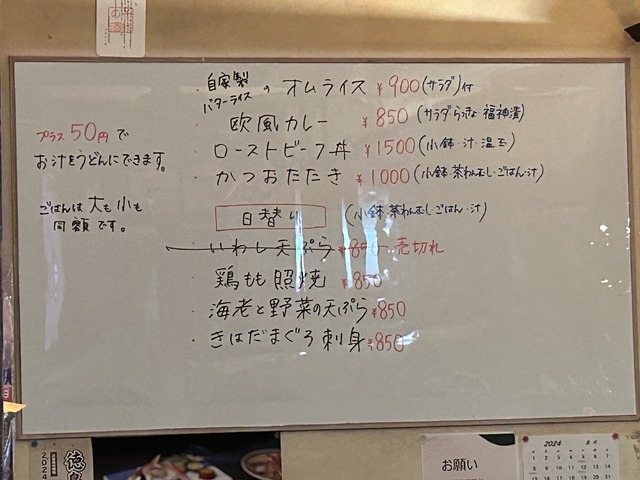 ・自家製
バターライスのオムライス ¥900(サラダ)付
・欧風カレー ¥850(サラダ・らっきょ・福神漬)
・ローストビーフ丼 ¥1500(小鉢・汁・温玉)
・かつおたたき ¥1000(小鉢・茶わんむし・ごはん・汁)
プラス50円で
お汁をうどんにできます。
ごはんは大も小も
同額です。
日替り (小鉢・茶わんむし・ごはん・汁)
・いわし天ぷら ¥850 売切れ
・鶏もも照焼 ¥850
・海老と野菜の天ぷら ¥850
・きはだまぐろ刺身 ¥850
お願い
2024
2024